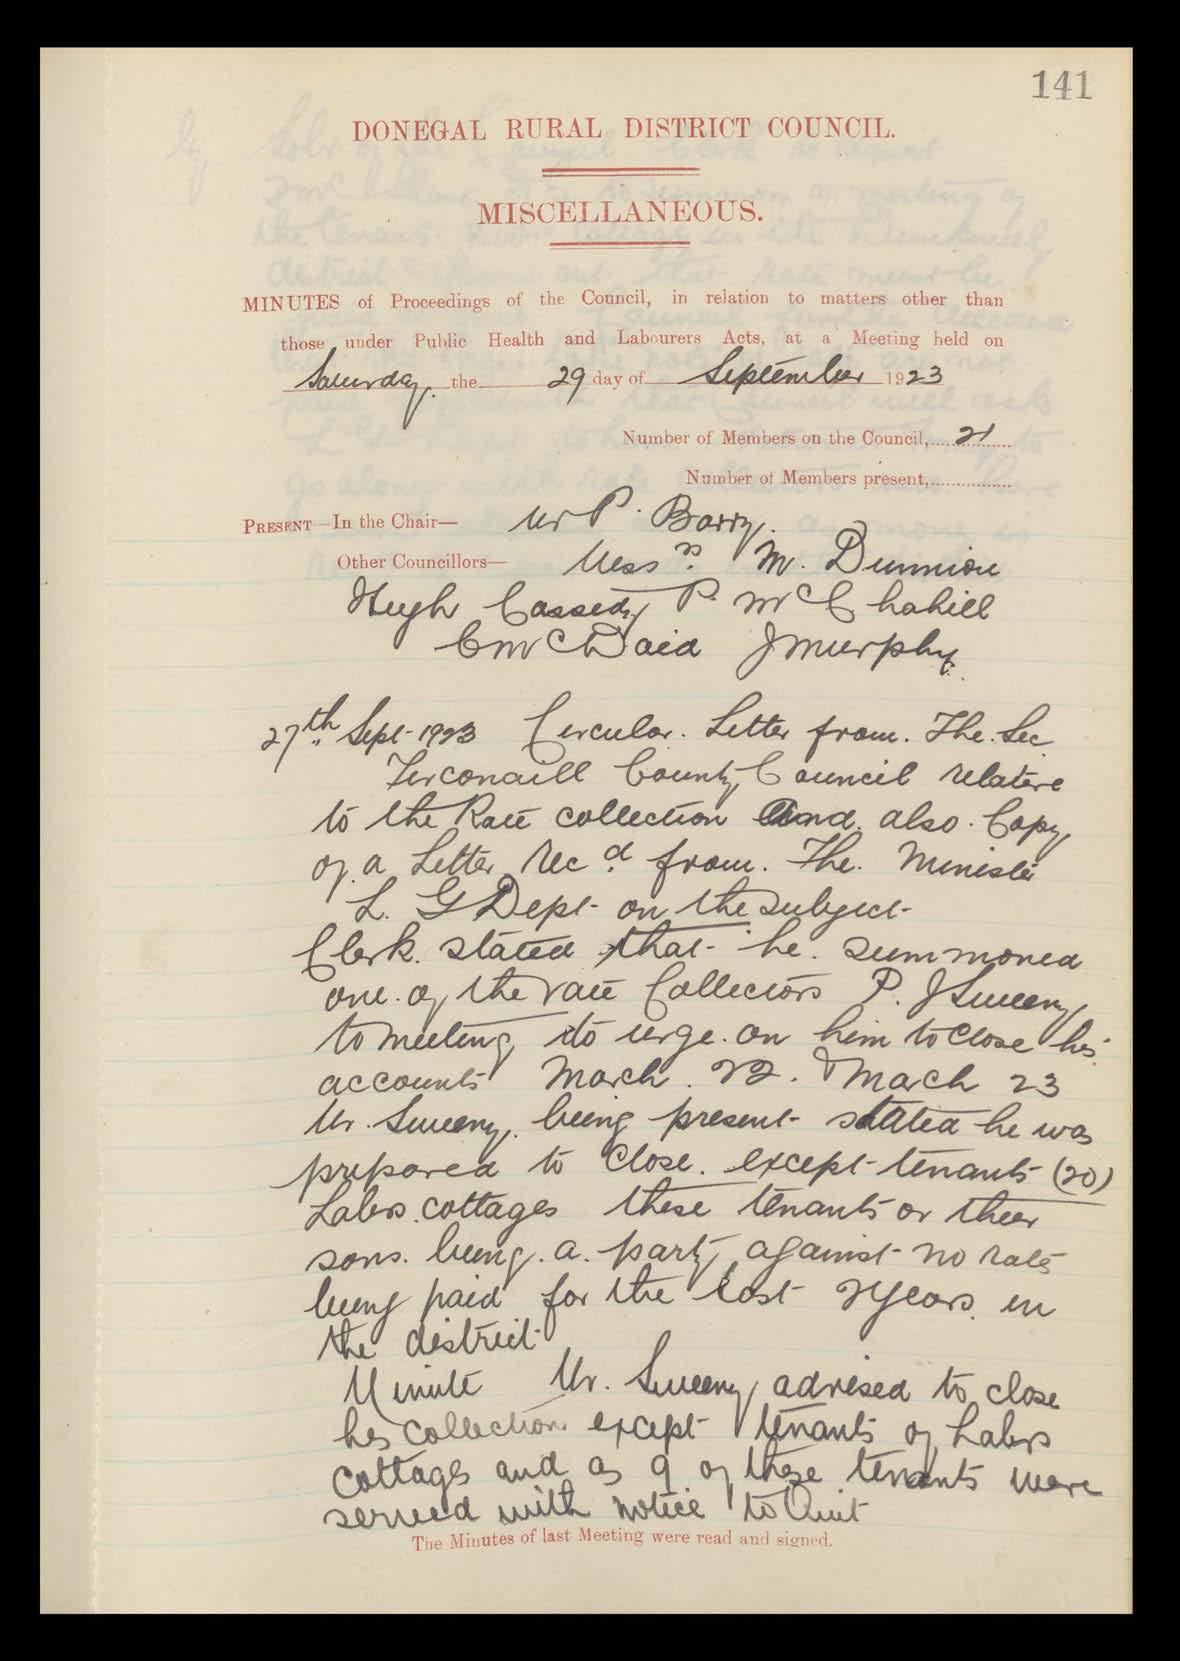 141
DONEGAL RURAL DISTRICT COUNCIL.
MISCELLANEOUS.
MINUTES of Proceedings of the Council, in relation to matters other than
those under Public Health and Labourers Acts, at a Meeting held on
Saturday. the 29 day of September 1923
Number of Members on the Council, 21
Number of Members present,
PRESENT—In the Chair— Mr P. Barry.
Other Councillors— Messrs. M. Dunnion
Hugh Cassedy P. McCahill
C McDaid J Murphy.
27th Sept. 1923 Circular. Letter from. The. Sec
Tirconaill County Council relative
to the Rate collection and. also. Copy
of a Letter Recd. from. The. Minister
L. G Dept. on the subject
Clerk. stated that he. summoned
one. of the rate Collectors P. J Sweeny
to meeting to urge. on him to close his
accounts March. 22. & March 23
Mr. Sweeny. being present stated he was
prepared to close. except tenants (20)
Labrs. cottages these tenants or their
sons. being. a. party against no rates
being paid for the last 2 years in
the district
Minute Mr. Sweeny advised to close
his collection except tenants of Labrs
cottages and as 9 of these tenants were
served with notice to Quit
The Minutes of last Meeting were read and signed.